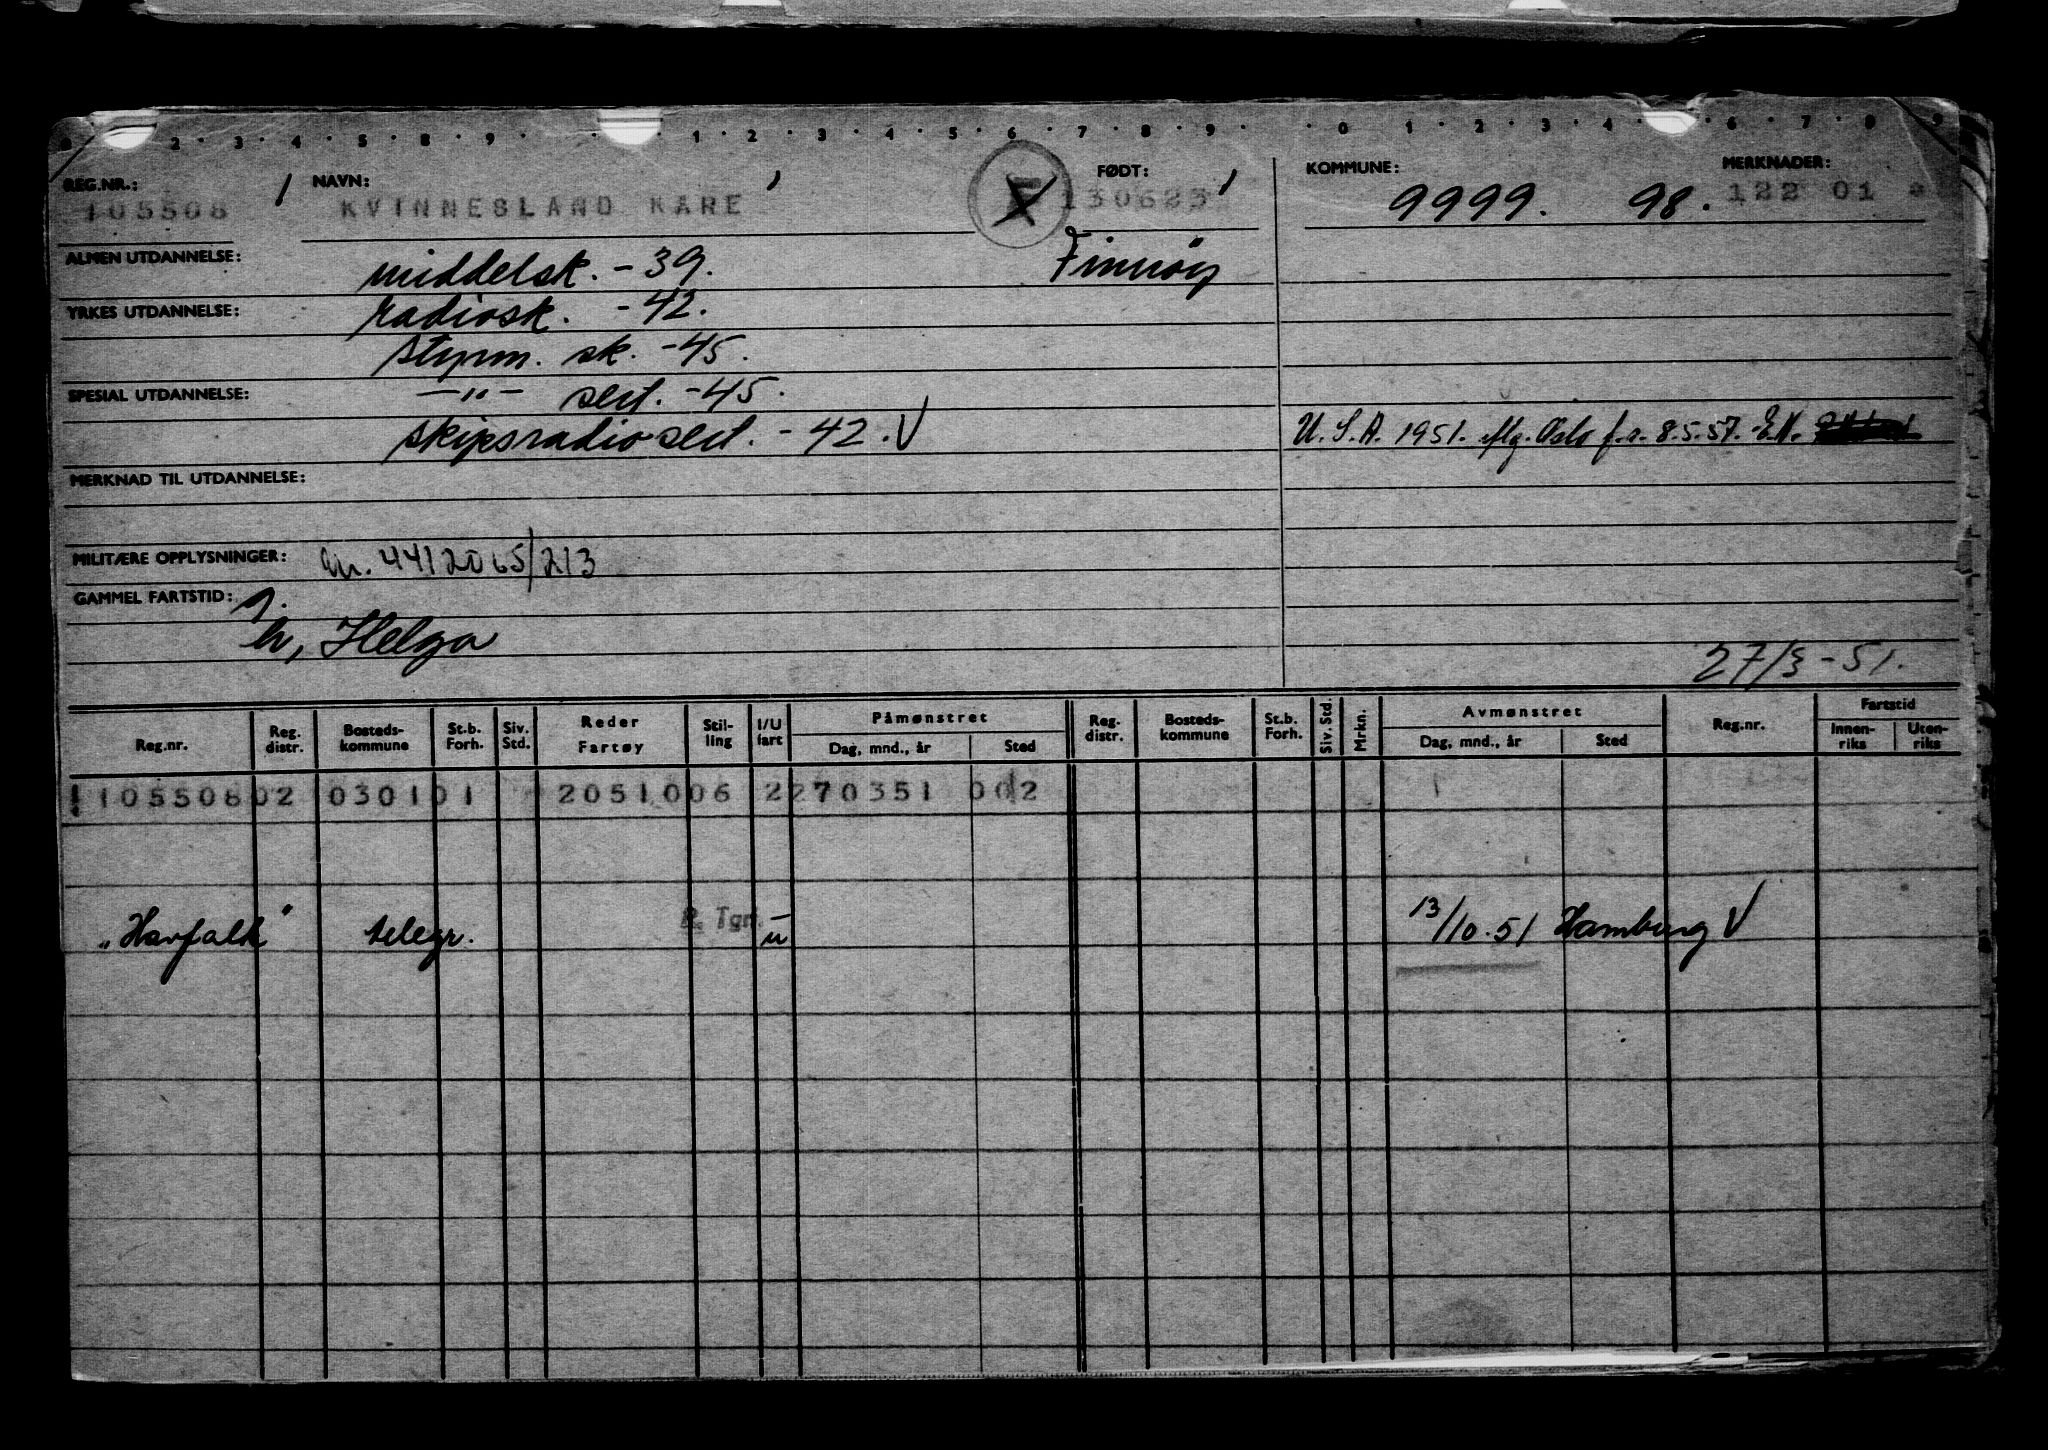 REG.NR.: NAVN: FØDT: KOMMUNE: MERKNADER:
105508 KVINNESLAND KARE 130625 9999. 98. 122 01
ALMEN UTDANNELSE: middelsk. - 39. Finnøy
YRKES UTDANNELSE: radiosk. - 42.
styrm. sk. - 45.
SPESIAL UTDANNELSE: —"— sert. - 45.
skipsradiosert. - 42. V U.S.A. 1951. flg. Oslo f.r. 8.5.57.
MERKNAD TIL UTDANNELSE:
MILITÆRE OPPLYSNINGER: 4412065/213
GAMMEL FARTSTID:
h, Helga
27/3 - 51.
Reg.nr. Reg. distr. Bosteds-kommune St.b. Forh. Siv. Std. Reder Fartøy Stil-ling I/U fart Påmønstret Dag, mnd., år Sted Reg. distr. Bosteds-kommune St.b. Forh. Siv. Std. Mrkn. Avmønstret Dag, mnd., år Sted Reg.nr. Fartstid Innen-riks Uten-riks
105508 02 0301 01 20510 06 2 270351 002
"Havfalk" telegr. R. Tgn. u 13/10.51 Hamburg V